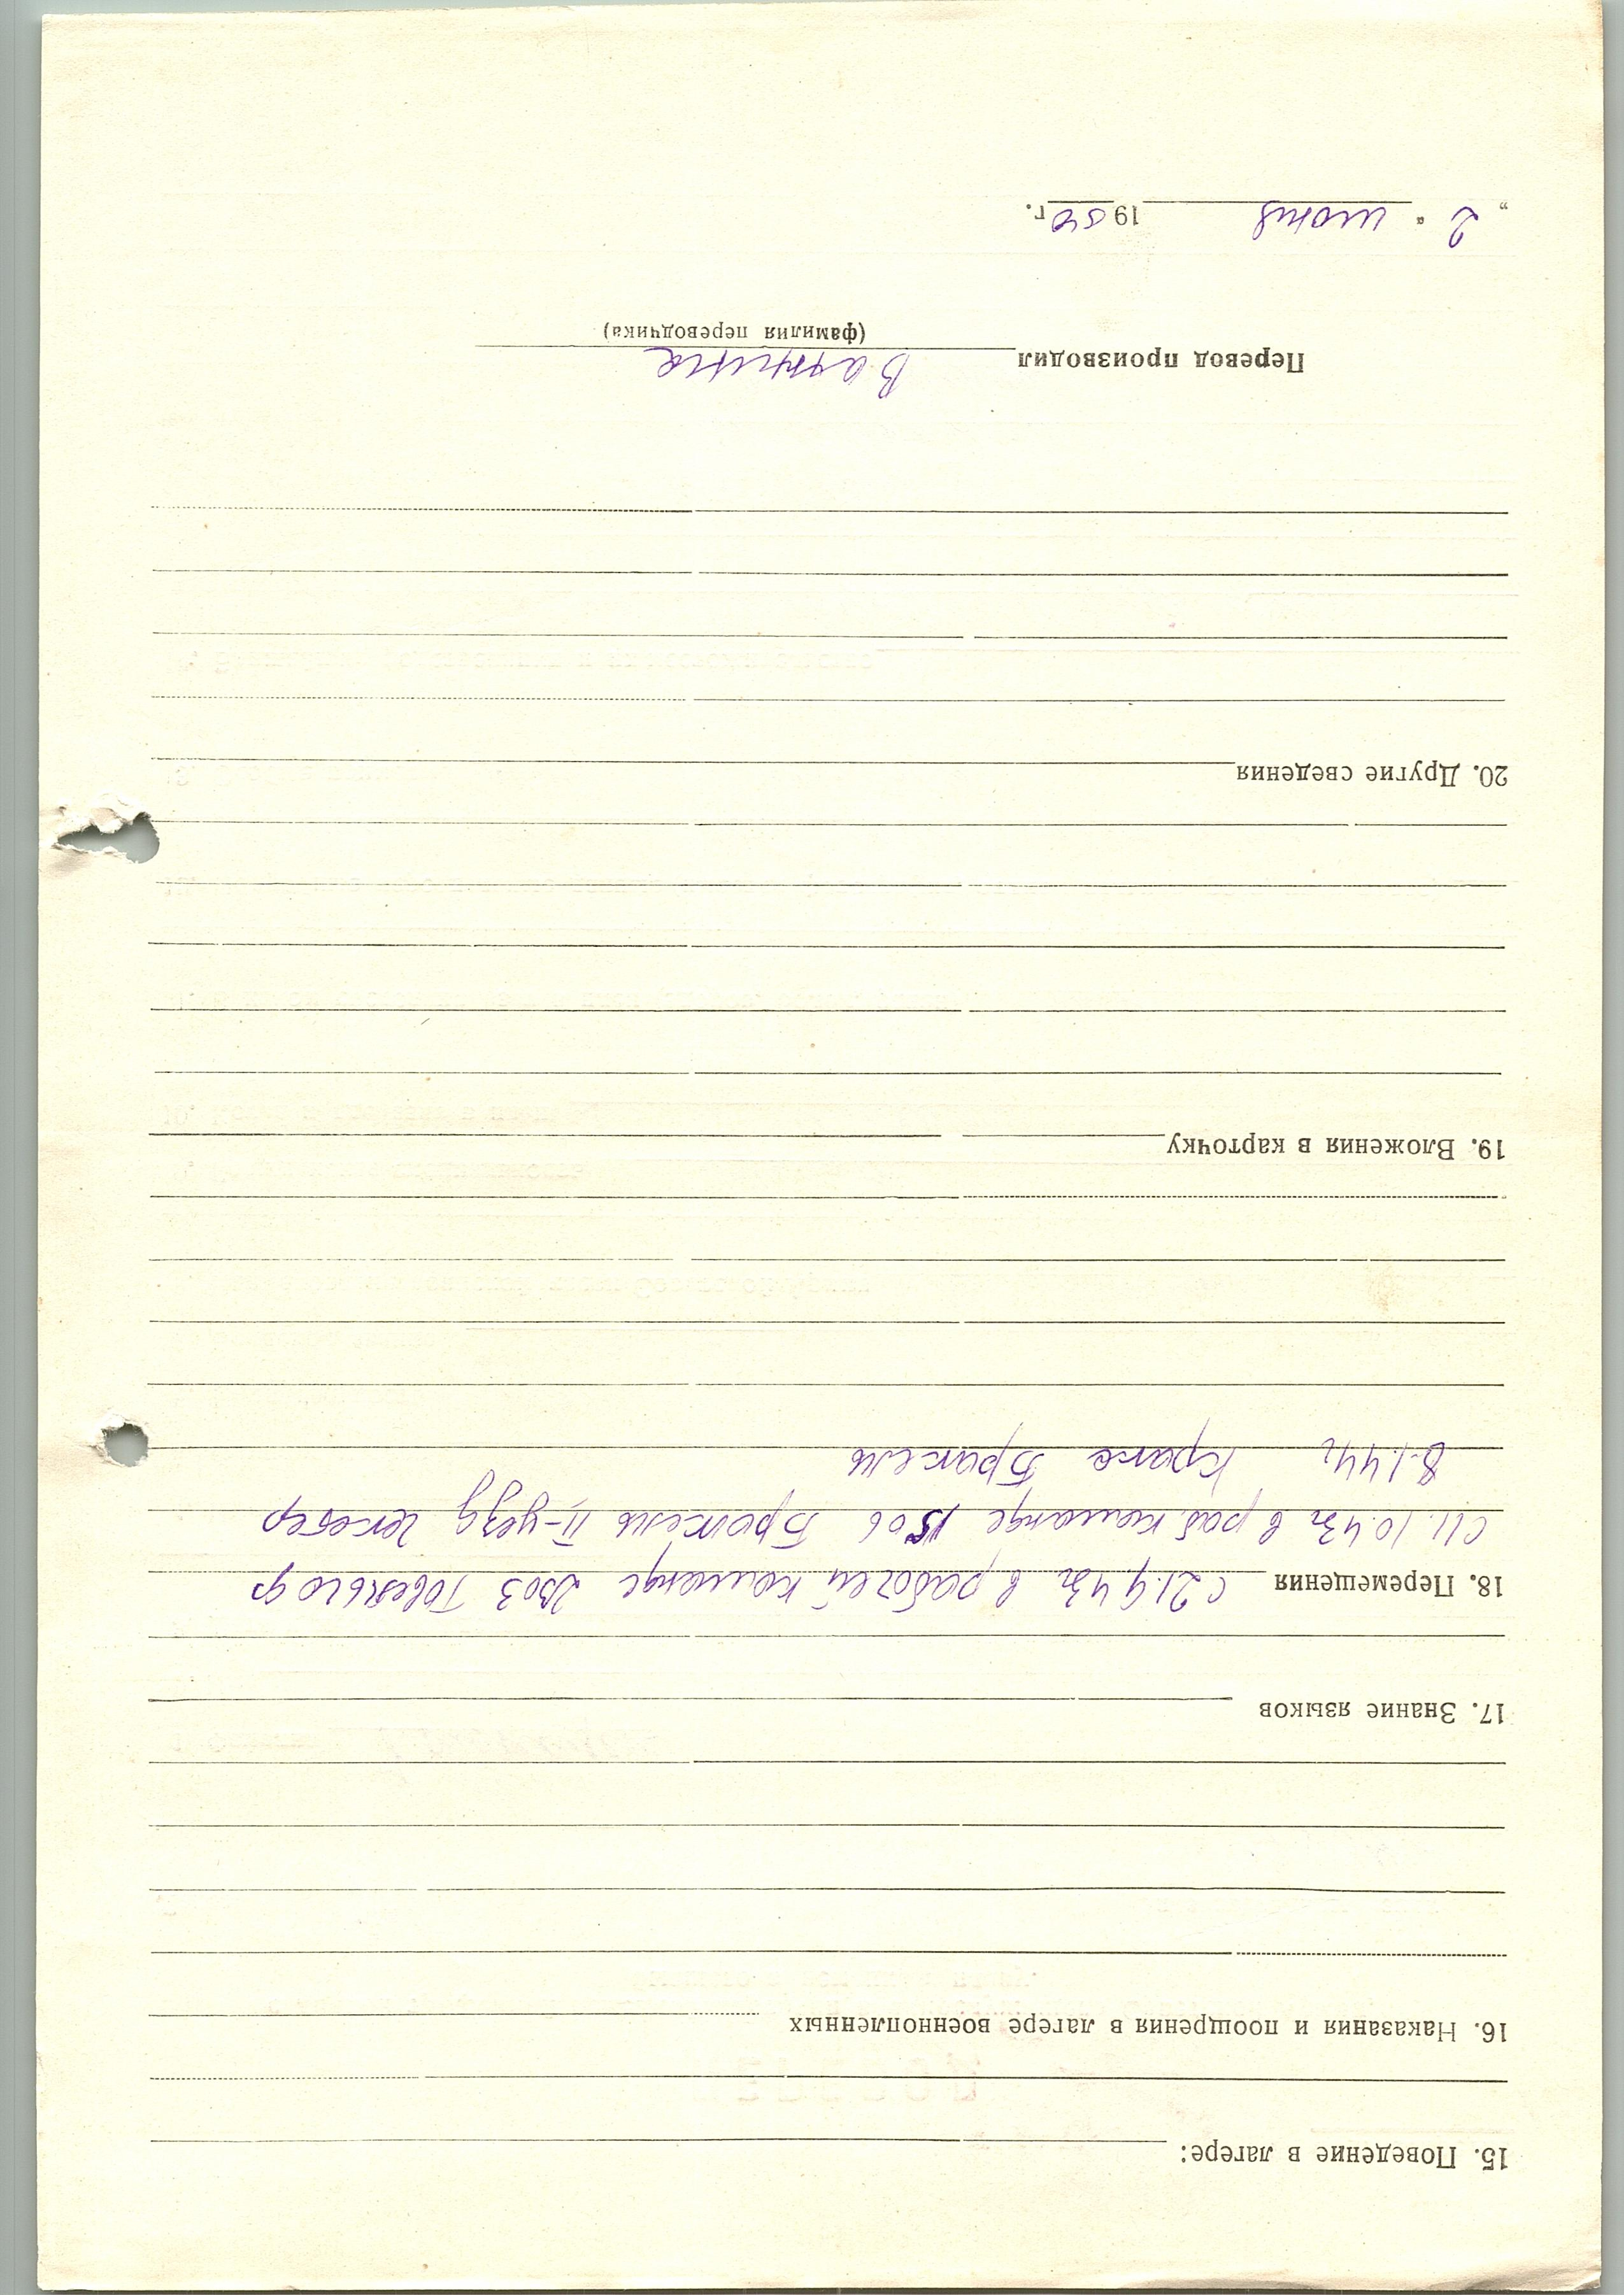 15. Поведение в лагере:
16. Наказания и поощрения в лагере военнопленных
17. Знание языков
18. Перемещения с 21.9.43г в рабочей команде 2303
с 11.10.43г в раб. команде 1506 II-уезд
8.1.44г Бракель
19. Вложения в карточку
20. Другие сведения
Перевод производил Ванина
(фамилия переводчика)
„ 2 “ июня 1950 г.